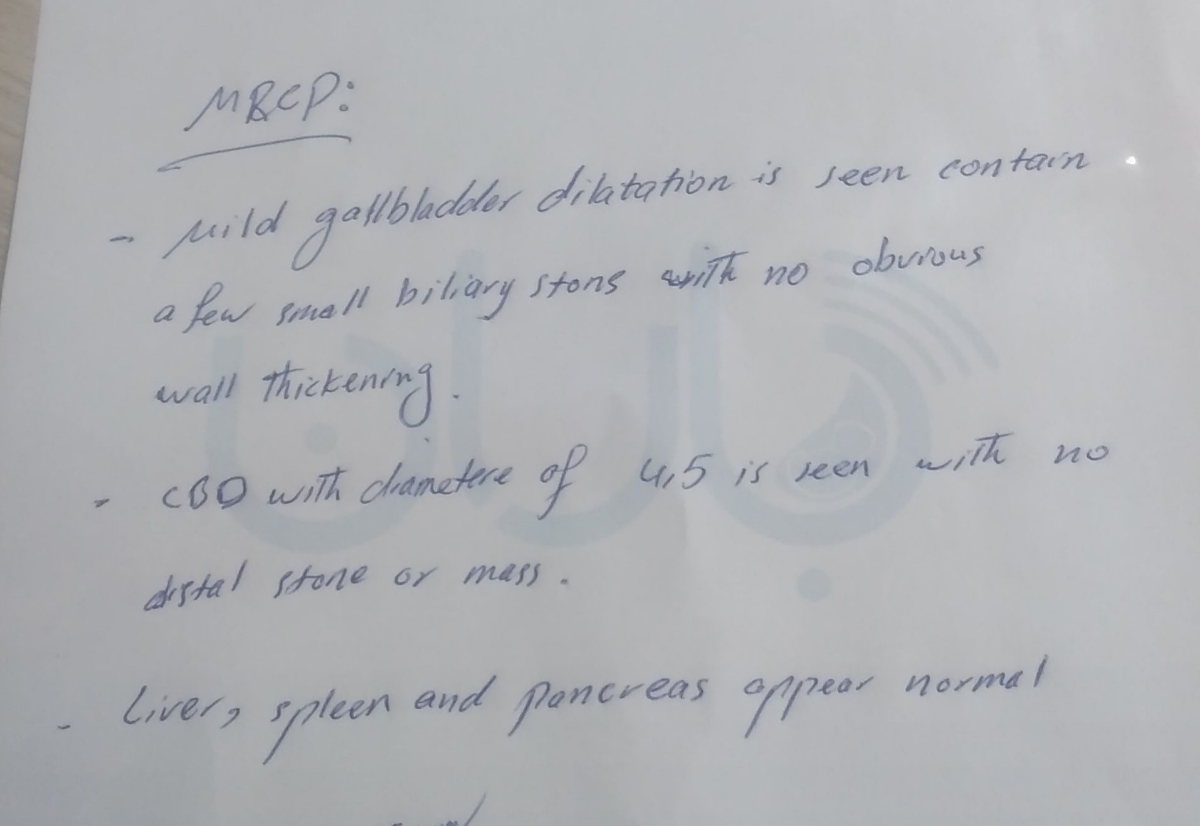 MRCP:
- Mild gallbladder dilatation is seen contain
a few small biliary stons with no obvious
wall thickening.
- CBD with diametere of 4,5 is seen with no
distal stone or mass.
- Liver, spleen and pancreas appear normal
باران